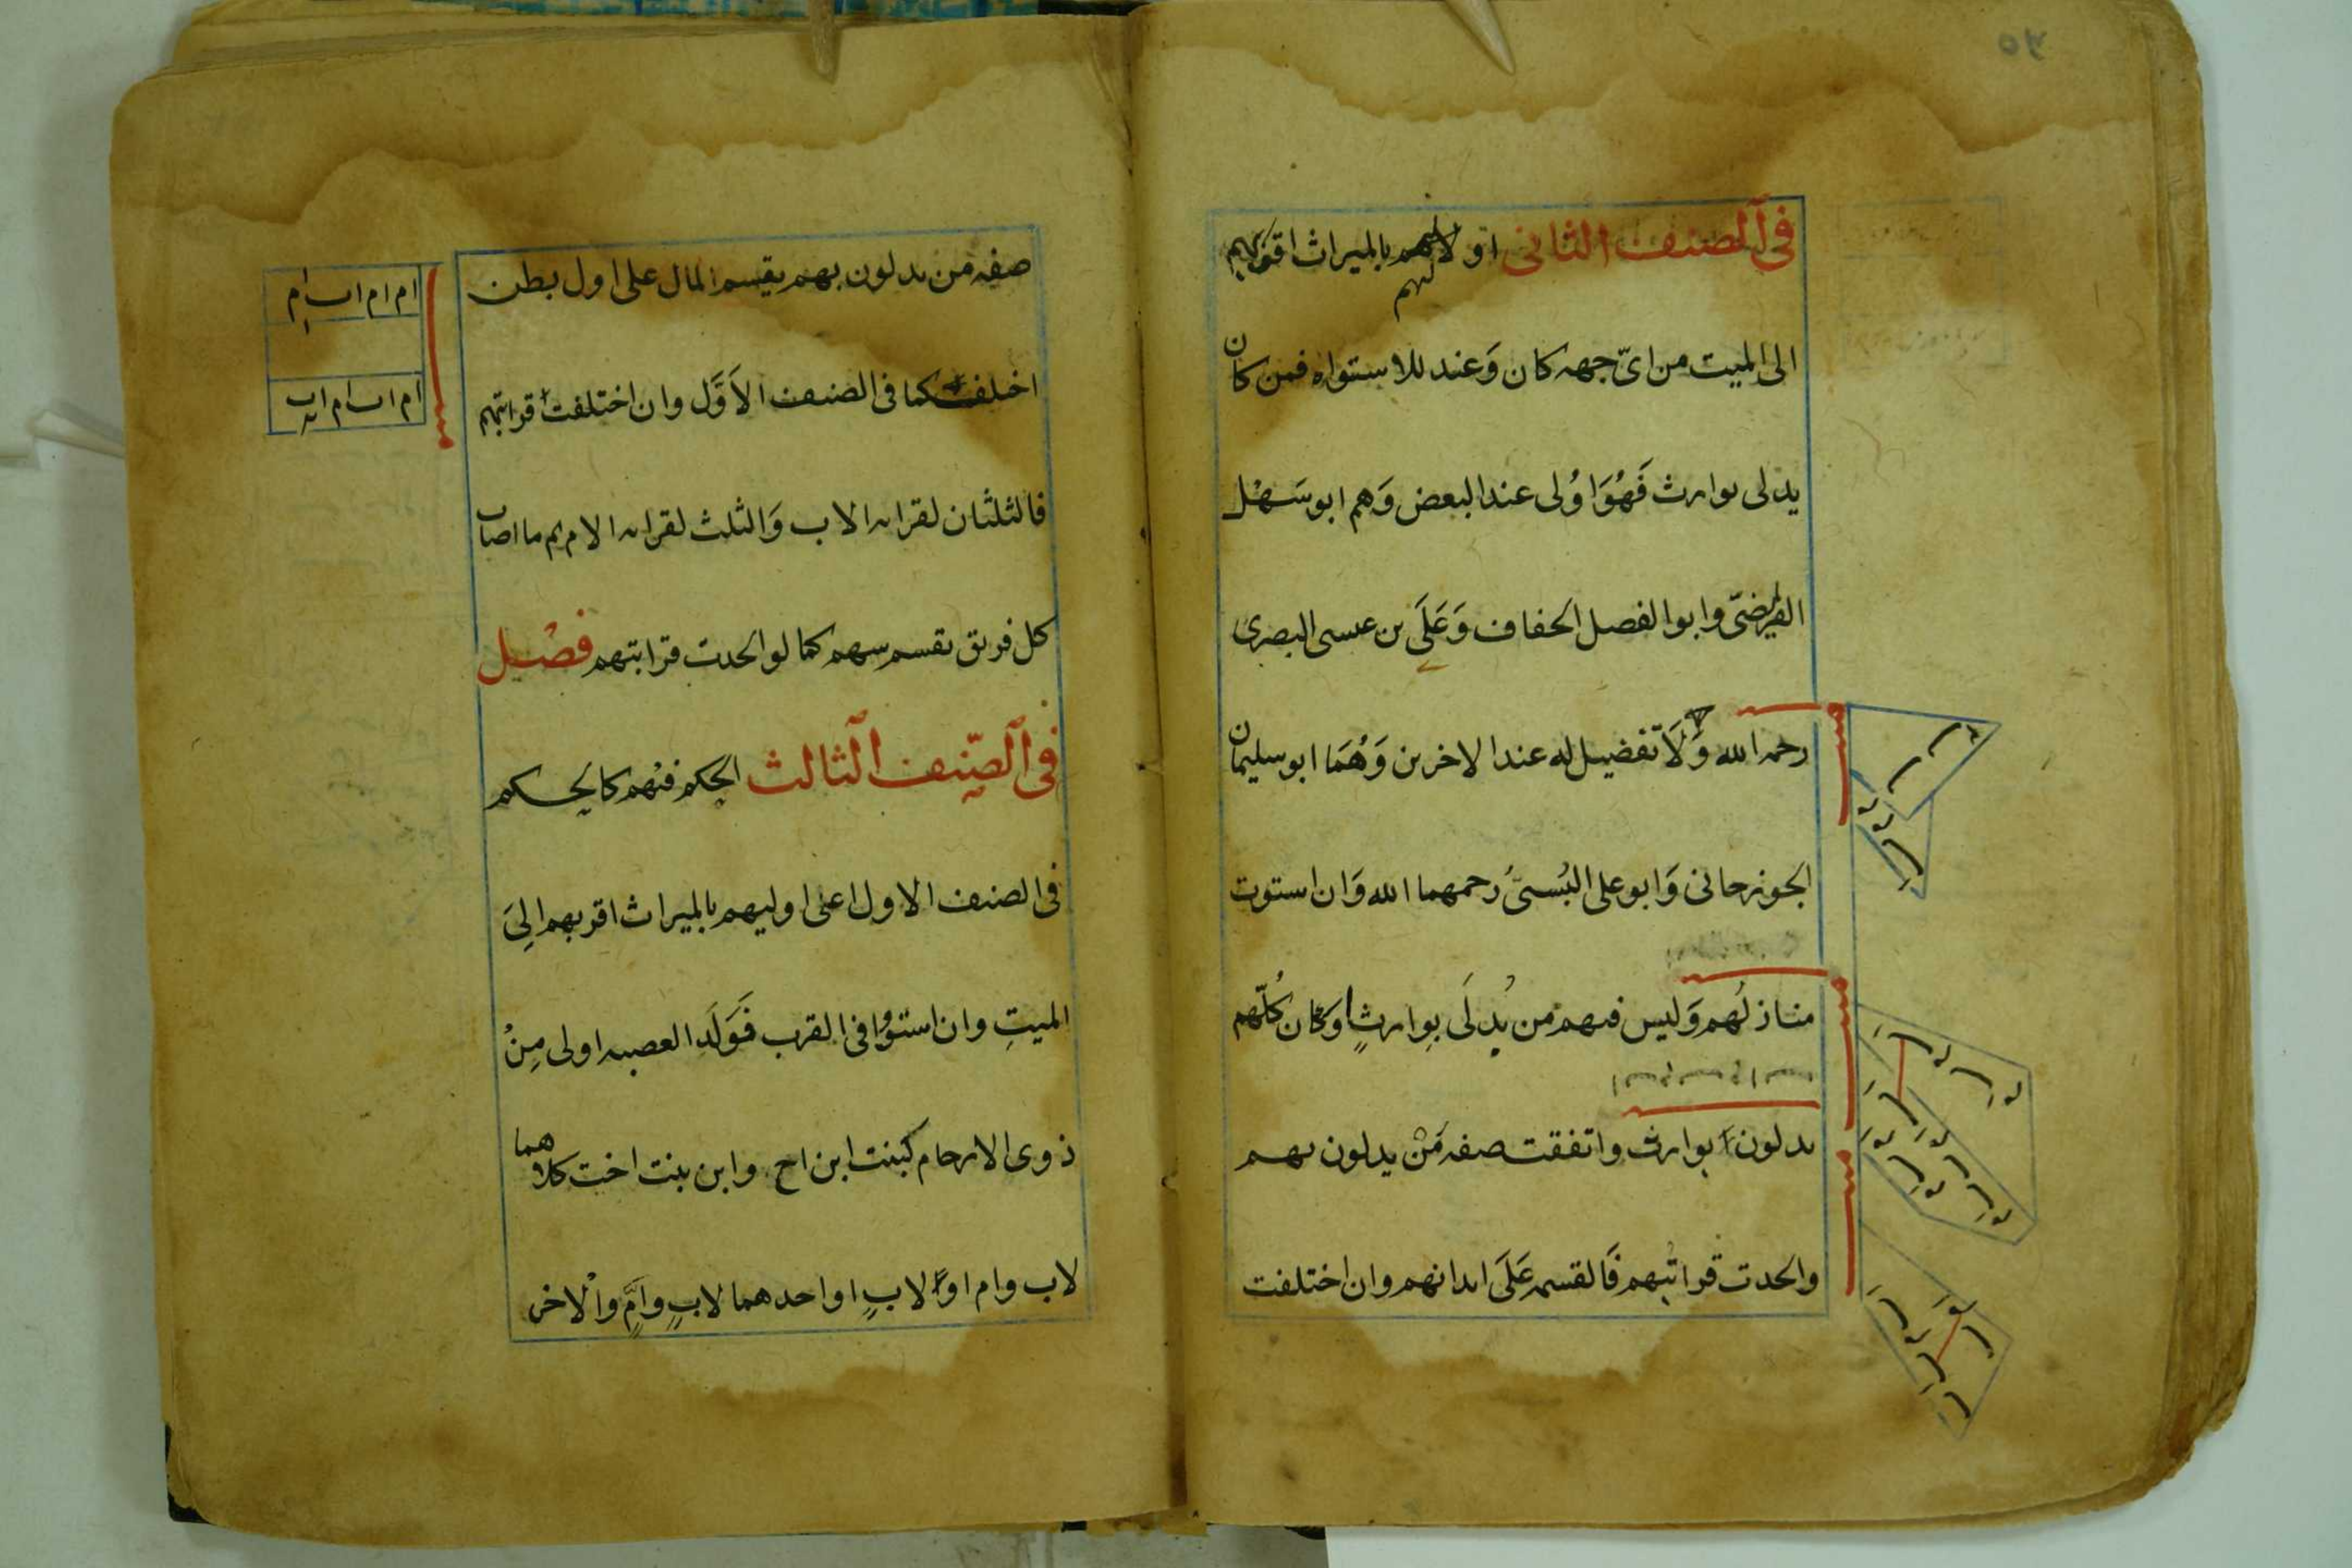 في الصنف الثاني اولاهم بالميراث اقربهم
لهم
الى الميت من اىّ جهه كان وَعند للاستواء فمن كان
يدلى بوارث فَهُوَ اوُلى عند البعض وَهم ابو سَهْل
الفرضىّ وابو الفصل الخفاف وَعَلَى بن عىسى البصرى
رحمه الله وَلَا تفضيل له عند الاخرين وَهُمَا ابو سليمان
الجوزجانى وَابو على البُستىُّ رحمهما الله وَان استوت
منازلُهم وَليس فىهم من يُدلَى بِوارثٍ اوكان كُلّهم
يدلون بوارث واتفقت صفه مَنْ يدلون بهم
واتحدت قرابتهم فَالقسمه عَلَى ابدانهم وان اختلفت
صفه من يدلون بهم يقسم المال على اول بطن
اختلف كما فى الصنف الاَوَّل وان اختلفت قرابتهم
فالثلثان لقرابه الاب وَالثلث لقرابه الام ثم ما اصاب
كل فريق يقسم بينهم كما لو اتحدت قرابتهم فصْل
فى الصّنِف الثالث الحكم فيْهم كالحكم
فى الصنف الاول اعنى اوليهم بالميراث اقربهم الِىَ
الميتِ وان استوُوا فى القرب فَوَلَد العصبه اولى مِنْ
ذوى الارحام كبنت ابن اخ وابن بنت اخت كلاهما
لاب وام اوْ لابٍ او احدهما لابٍ وامٍّ والْاخر
ام ام اب ام
ام اب ام اب